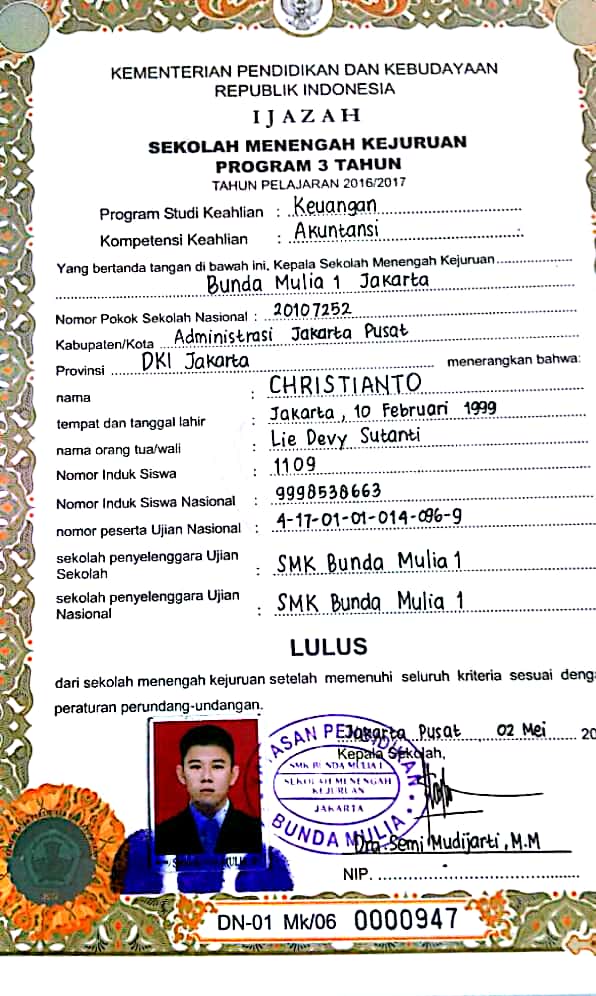 KEMENTERIAN PENDIDIKAN DAN KEBUDAYAAN
REPUBLIK INDONESIA
IJAZAH
SEKOLAH MENENGAH KEJURUAN
PROGRAM 3 TAHUN
TAHUN PELAJARAN 2016/2017
Program Studi Keahlian : Keuangan
Kompetensi Keahlian : Akuntansi
Yang bertanda tangan di bawah ini, Kepala Sekolah Menengah Kejuruan
Bunda Mulia 1 Jakarta
Nomor Pokok Sekolah Nasional : 20107252
Kabupaten/Kota Administrasi Jakarta Pusat
Provinsi DKI Jakarta menerangkan bahwa:
nama : CHRISTIANTO
tempat dan tanggal lahir : Jakarta, 10 Februari 1999
nama orang tua/wali : Lie Devy Sutanti
Nomor Induk Siswa : 1109
Nomor Induk Siswa Nasional : 9998538663
nomor peserta Ujian Nasional : 4-17-01-01-014-096-9
sekolah penyelenggara Ujian
Sekolah : SMK Bunda Mulia 1
sekolah penyelenggara Ujian
Nasional : SMK Bunda Mulia 1
LULUS
dari sekolah menengah kejuruan setelah memenuhi seluruh kriteria sesuai deng
peraturan perundang-undangan.
Jakarta Pusat, 02 Mei 20
Kepala Sekolah,
ASAN PENDIDIKAN
SMK BUNDA MULIA 1
SEKOLAH MENENGAH
KEJURUAN
JAKARTA
BUNDA MULIA
Dra. Semi Mudijarti, M.M
NIP.
DN-01 Mk/06 0000947